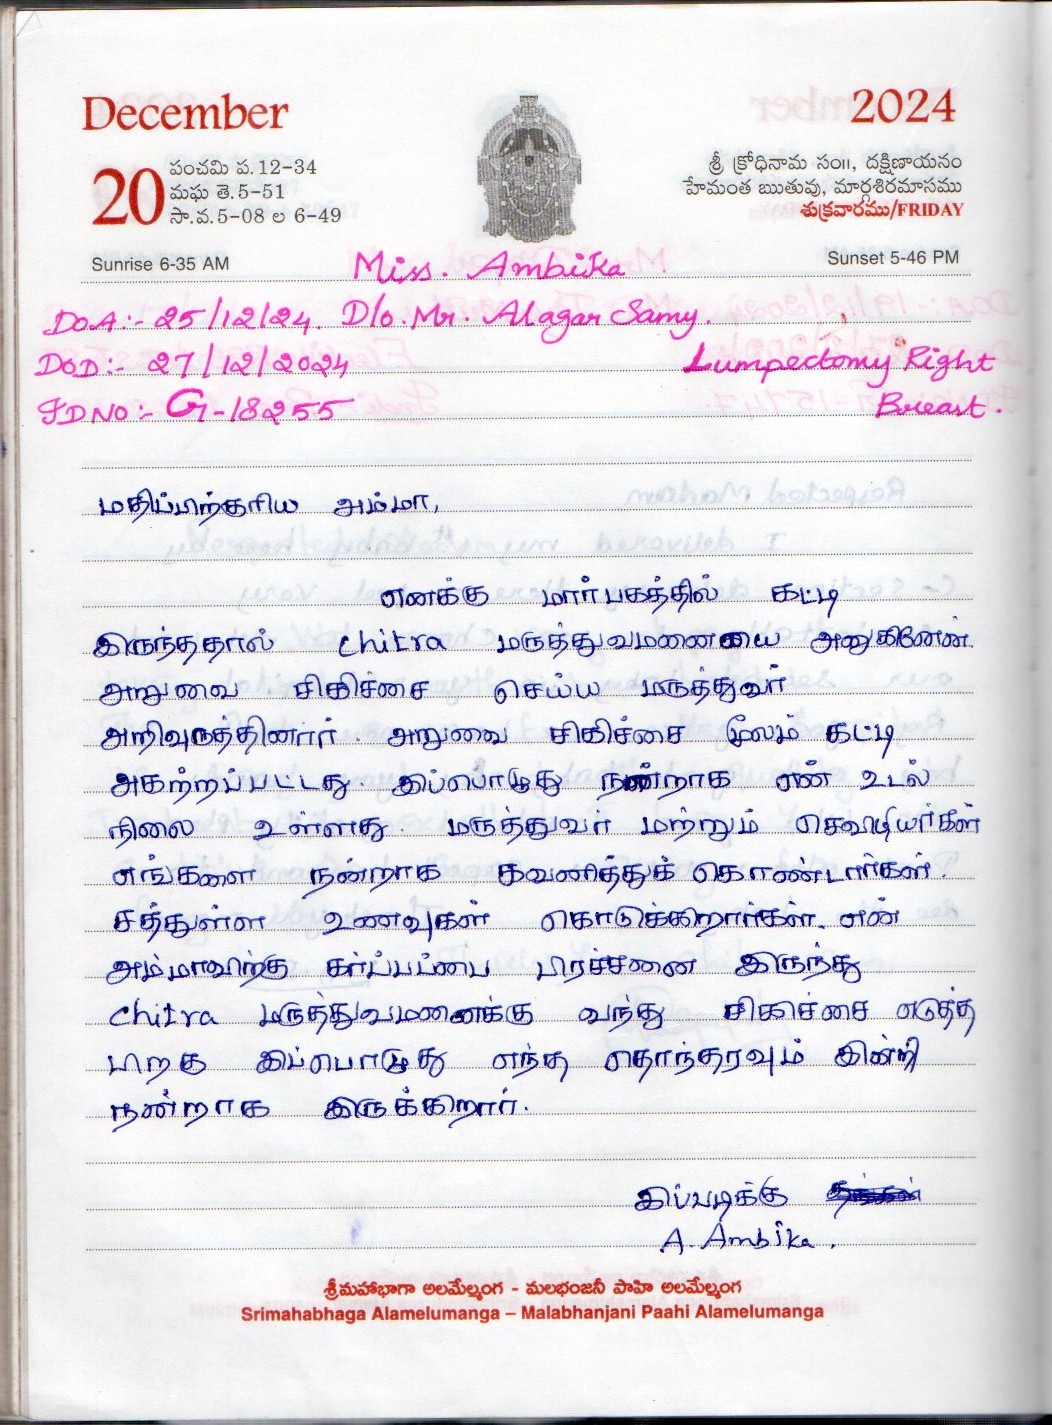 December 2024
20 పంచమి ప.12-34
మఘ తె.5-51
సా.వ.5-08 ల 6-49
శ్రీ క్రోధినామ సం॥, దక్షిణాయనం
హేమంత ఋతువు, మార్గశిరమాసము
శుక్రవారము/FRIDAY
Sunrise 6-35 AM
Sunset 5-46 PM
Miss. Ambika
DOA:- 25/12/24. D/o. Mr. Alagar Samy.
DOD:- 27/12/2024 Lumpectomy Right
IDNO:- G-18255 Breast.
மதிப்பிற்குரிய அம்மா,
எனக்கு மார்பகத்தில் கட்டி
இருந்ததால் Chitra மருத்துவமனையை அனுகினேன்.
அறுவை சிகிச்சை செய்ய மருத்துவர்
அறிவுருத்தினார். அறுவை சிகிச்சை மூலம் கட்டி
அகற்றப்பட்டது. இப்பொழுது நன்றாக என் உடல்
நிலை உள்ளது. மருத்துவர் மற்றும் செவிலியர்கள்
எங்களை நன்றாக கவனித்துக் கொண்டார்கள்.
சத்துள்ள உணவுகள் கொடுக்கிறார்கள். என்
அம்மாவிற்கு கர்ப்பப்பை பிரச்சனை இருந்து
Chitra மருத்துவமனைக்கு வந்து சிகிச்சை எடுத்த
பிறகு இப்பொழுது எந்த தொந்தரவும் இன்றி
நன்றாக இருக்கிறார்.
இப்படிக்கு
A. Ambika.
శ్రీమహాభాగా అలమేల్మంగ - మలభంజనీ పాహి అలమేల్మంగ
Srimahabhaga Alamelumanga – Malabhanjani Paahi Alamelumanga